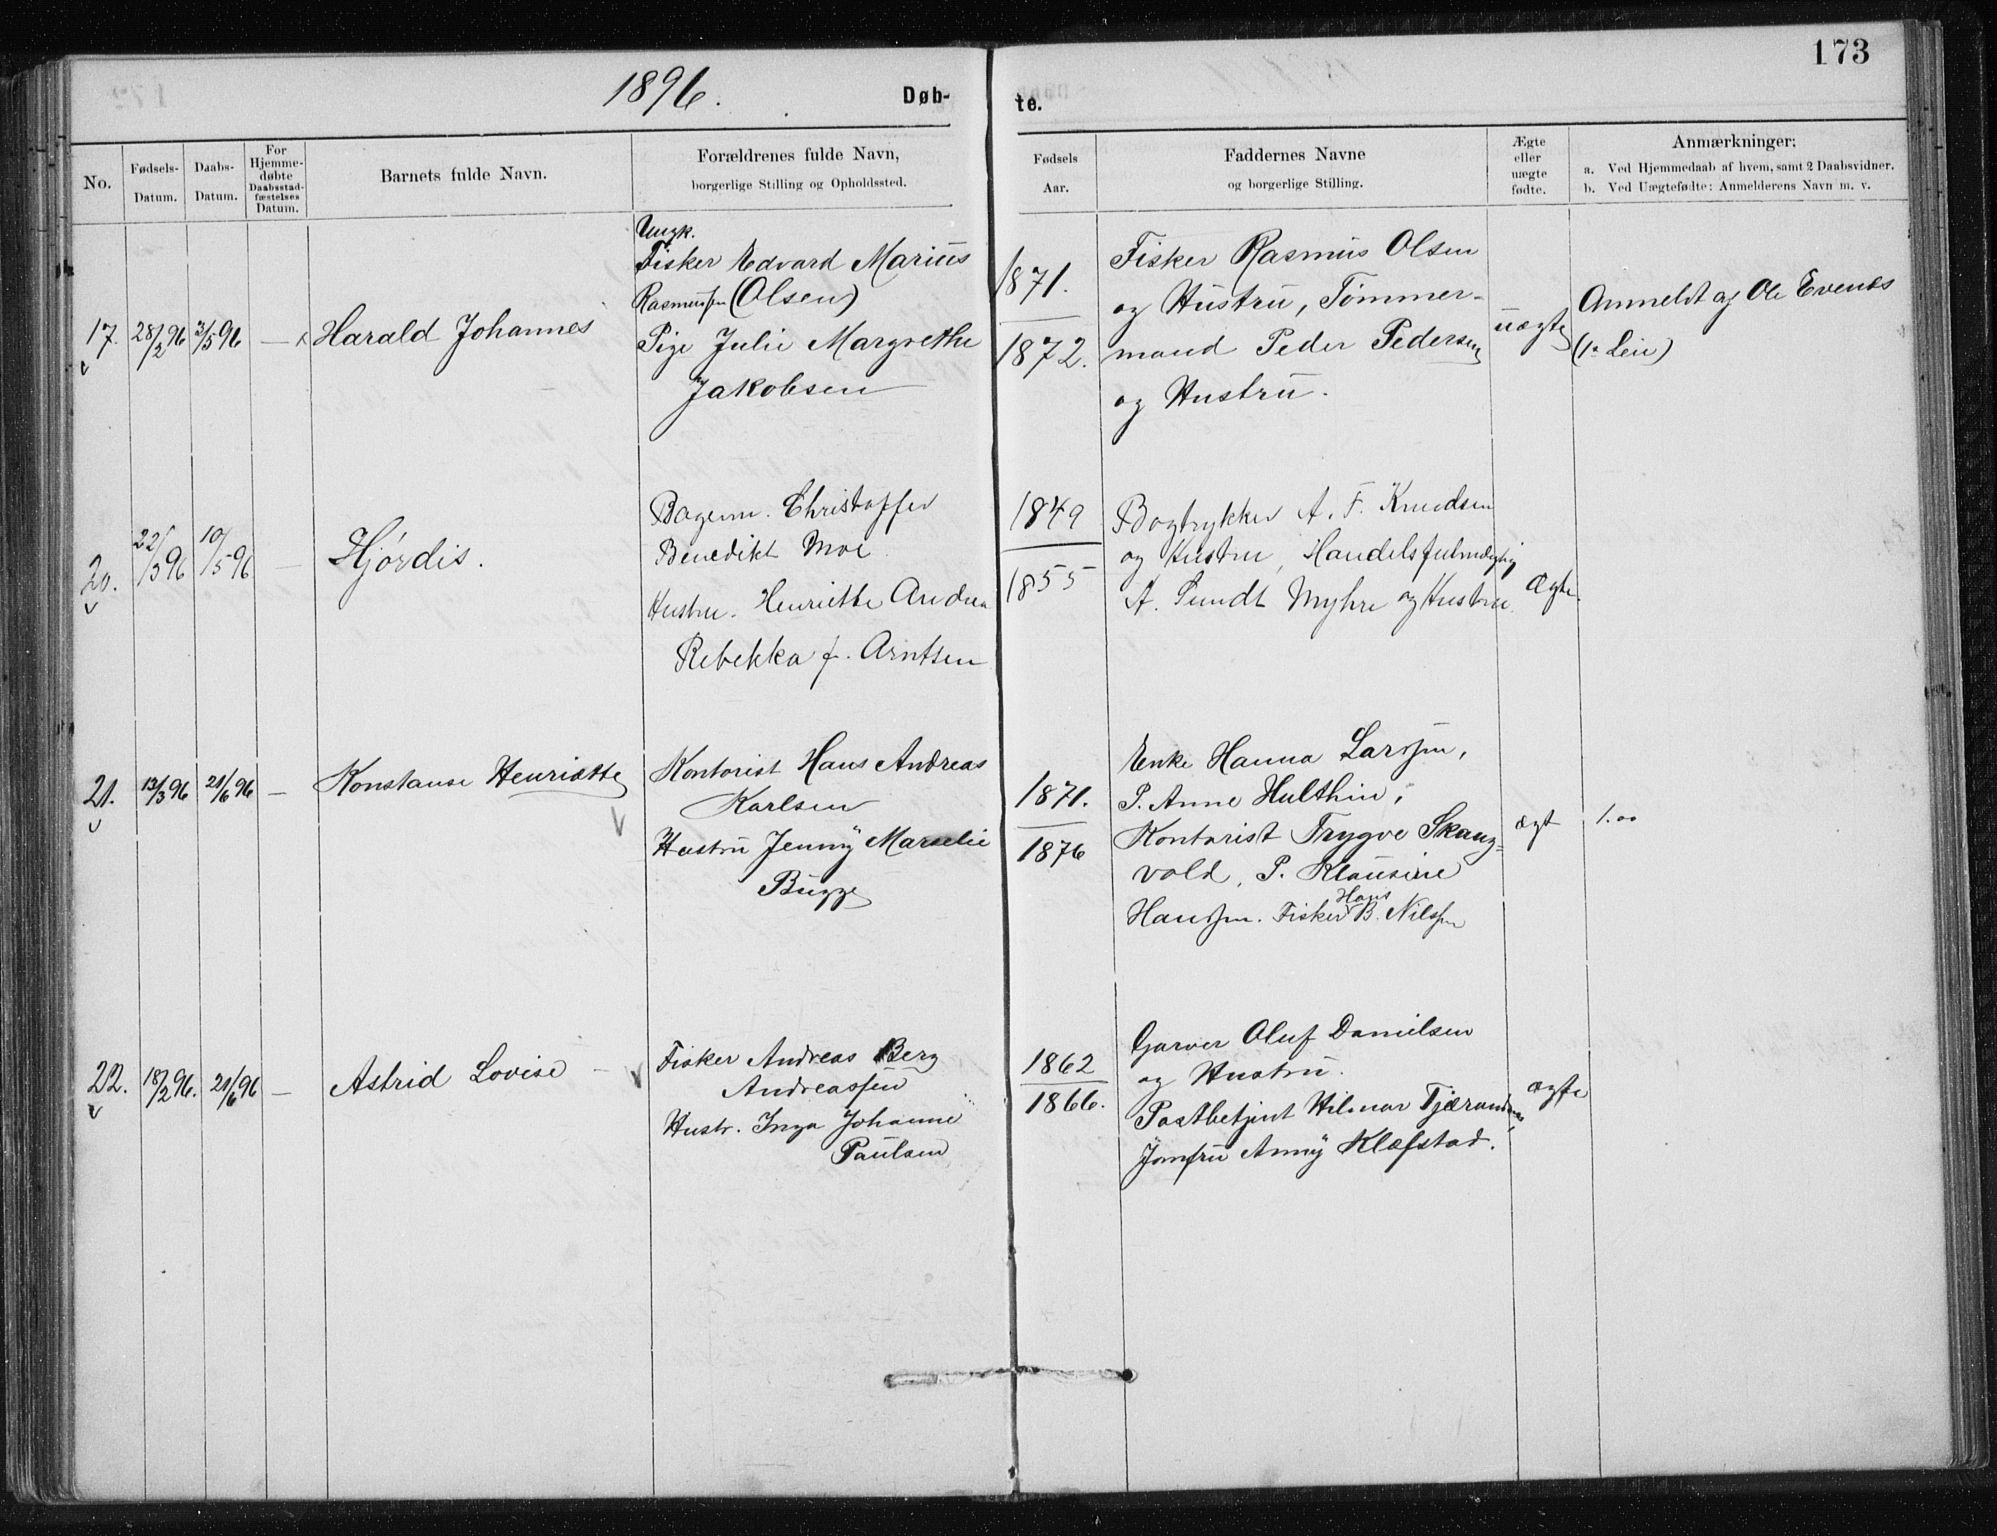 173
1896. Døb- te.
No.
Fødsels-
Datum.
Daabs-
Datum.
For
Hjemme-
døbte
Daabsstad-
fæstelses
Datum.
Barnets fulde Navn.
Forældrenes fulde Navn,
borgerlige Stilling og Opholdssted.
Fødsels
Aar.
Faddernes Navne
og borgerlige Stilling.
Ægte
eller
uægte
fødte.
Anmærkninger:
a. Ved Hjemmedaab af hvem, samt 2 Daabsvidner.
b. Ved Uægtefødte: Anmelderens Navn m. v.
17.
28/2 96
3/5 96
—
Harald Johannes
Ungk.
Fisker Edvard Marius
Rasmussen (Olsen)
Pige Julie Margrethe
Jakobsen
1871.
1872.
Fisker Rasmus Olsen
og Hustru, Tømmer-
mand Peder Pedersen
og Hustru.
uægte
Anmeldt af Ole Evenss
(1ste Leie)
20.
22/3 96
10/5 96
—
Hjórdis.
Bagerm. Christoffer
Benedikt Moe
Hustru. Henriette Andrea
Rebekka f. Arntsen
1849
1855
Bogtrykker A. F. Knudsen
og Hustru, Handelsfuldmægtig
A. Sundt Myhre og Hustru.
Ægte.
21.
13/3 96
21/6 96
—
Konstanse Henriette
Kontorist Hans Andreas
Karlsen
Hustru Jenny Marselie
Bugge
1871.
1876
Enke Hanna Larssen,
P. Anne Hulthin,
Kontorist Trygve Skaug-
vold, P. Klausine
Hanssen. Fisker Hans B. Nilssen
ægt
1.00
22.
18/2 96.
21/6 96
—
Astrid Lovise —
Fisker Andreas Berg
Andreassen
Hustr. Inga Johanne
Paulsen
1862
1866.
Garver Oluf Danielsen
og Hustru.
Postbetjent Hilmar Tjærandsen,
Jomfru Anny Klæfstad.
ægte